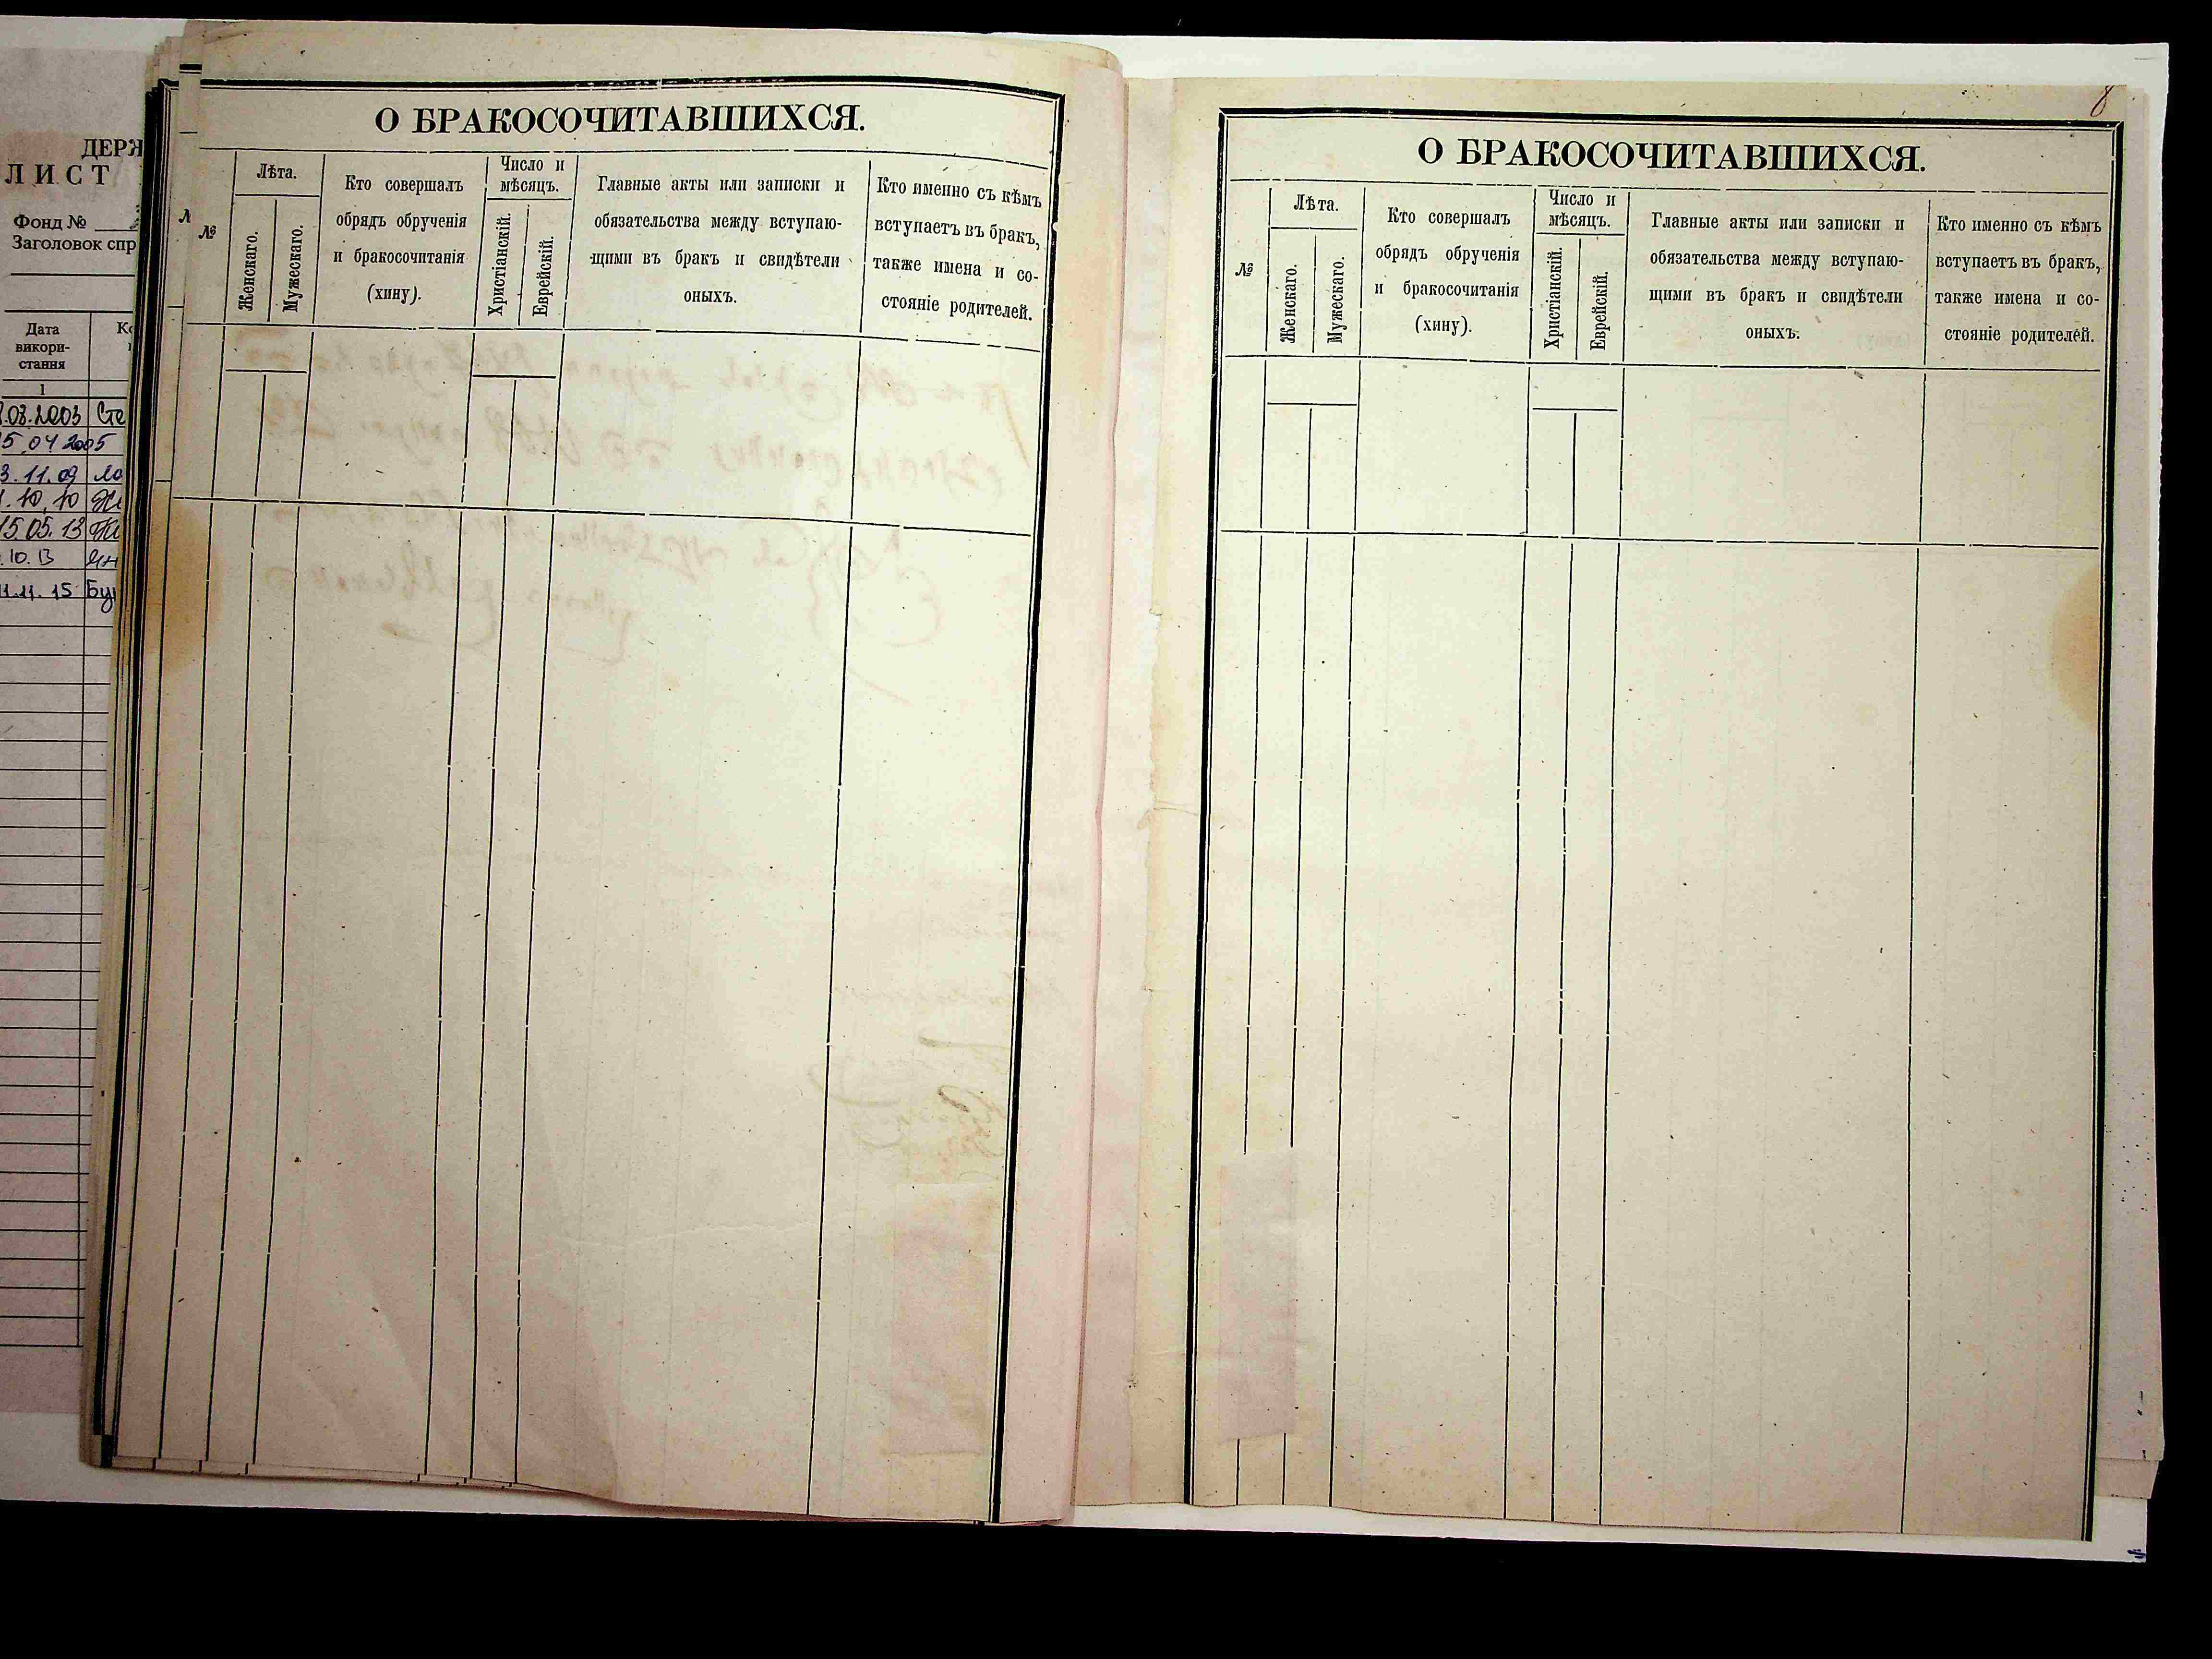 ДЕРЖ
ЛИСТ
Фонд №
Заголовок спр
Дата
викори-
стання
1
.08.2003 Сте
5.04 2005
3.11.09
.10.10
15.05.13
.10.13
11.11.15 Бу
О БРАКОСОЧИТАВШИХСЯ.
№
Лѣта.
Женскаго.
Мужескаго.
Кто совершалъ
обрядъ обрученія
и бракосочитанія
(хину).
Число и
мѣсяцъ.
Христіанскій.
Еврейскій.
Главные акты или записки и
обязательства между вступаю-
щими въ бракъ и свидѣтели
оныхъ.
Кто именно съ кѣмъ
вступаетъ въ бракъ,
также имена и со-
стояніе родителей.
8
О БРАКОСОЧИТАВШИХСЯ.
№
Лѣта.
Женскаго.
Мужескаго.
Кто совершалъ
обрядъ обрученія
и бракосочитанія
(хину).
Число и
мѣсяцъ.
Христіанскій.
Еврейскій.
Главные акты или записки и
обязательства между вступаю-
щими въ бракъ и свидѣтели
оныхъ.
Кто именно съ кѣмъ
вступаетъ въ бракъ,
также имена и со-
стояніе родителей.